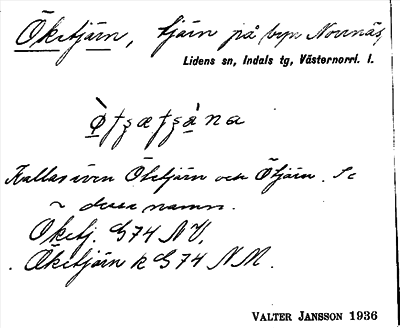 Öketjärn, tjärn på byn Norrnäs
Lidens sn, Indals tg, Västernorrl. l.
Kallas även Öketjärn och Ötjärn. Se
~ dessa namn.
Öketj. G74 NV.
Öketjärn k G74 NM.
VALTER JANSSON 1936